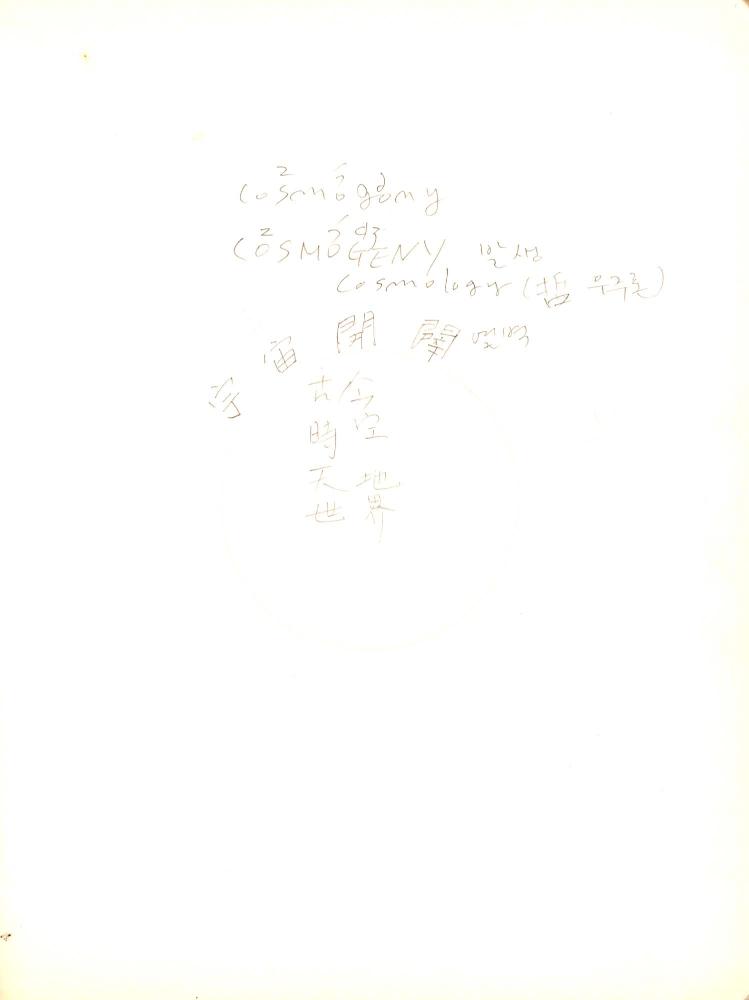 cosmógony
COSMÓGENY 발생
cosmology (哲 우주론)
宇宙開闢 열벽
古今
時空
天地
世界